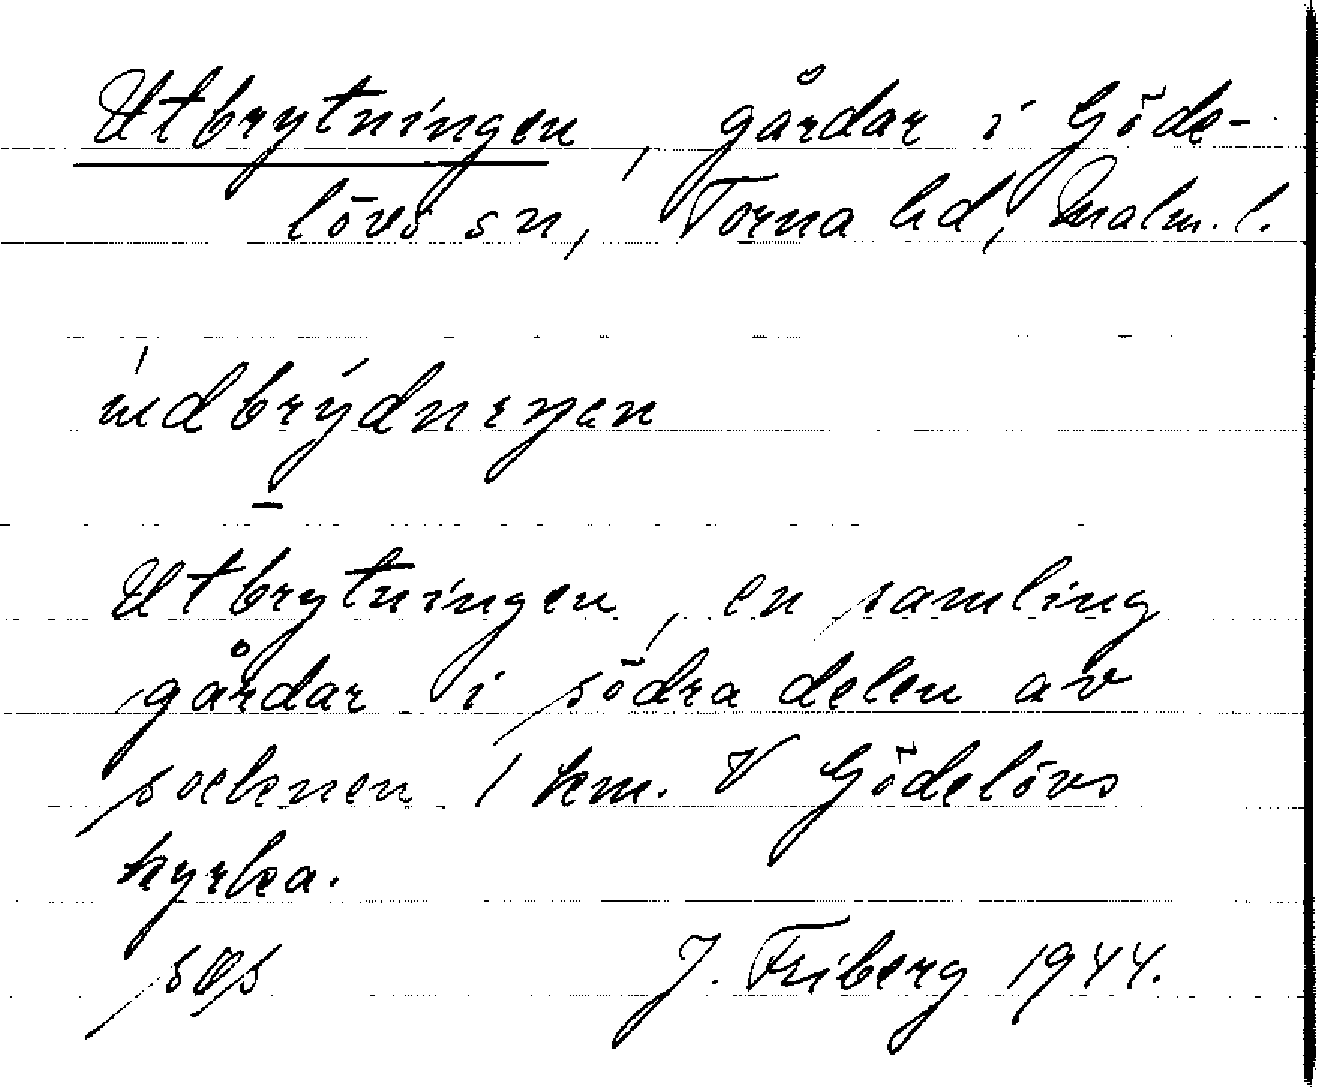 Utbrytningen, gårdar i Göde-
lövs sn, Torna hd, Malm. l.
Utbrytningen, en samling
gårdar i södra delen av
socknen 1 km. V Gödelövs
kyrka.
J. Friberg 1944.